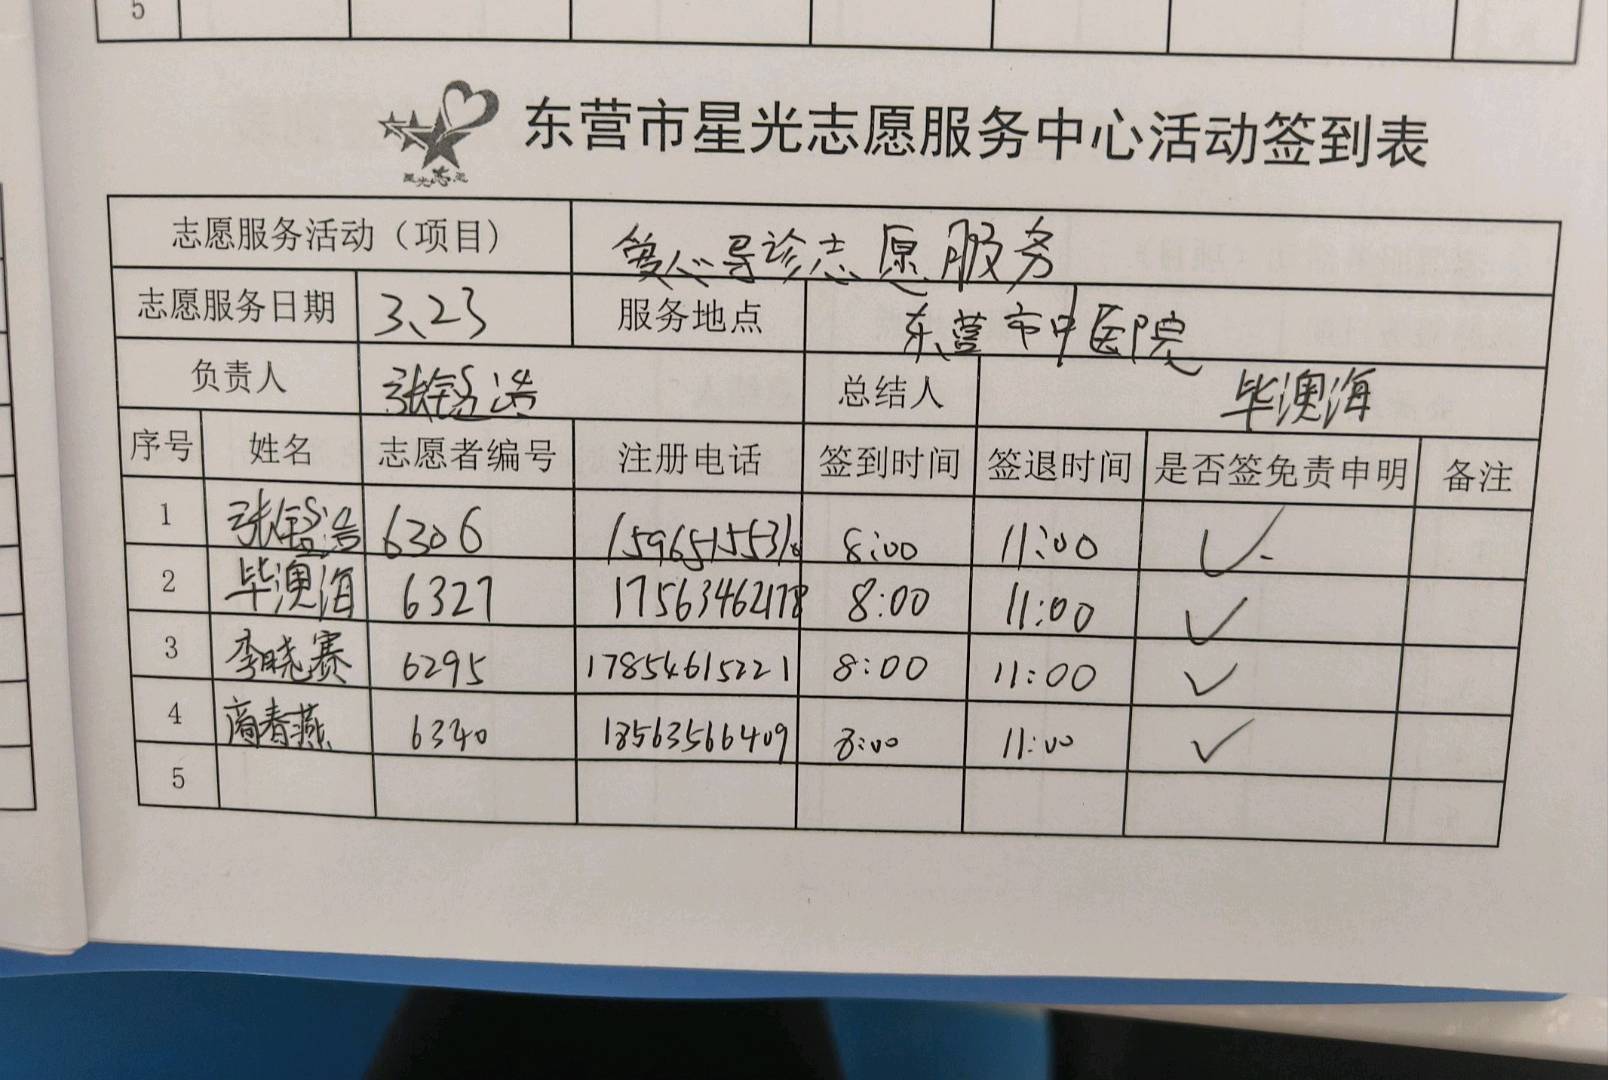 5
东营市星光志愿服务中心活动签到表
星光志愿
志愿服务活动（项目） 爱心导诊志愿服务
志愿服务日期 3、23 服务地点 东营市中医院
负责人 张 浩 总结人 毕澳海
序号 姓名 志愿者编号 注册电话 签到时间 签退时间 是否签免责申明 备注
1 张 浩 6306 8:00 11:00 ✓
2 毕澳海 6327 17563462178 8:00 11:00 ✓
3 李晓赛 6295 17854615221 8:00 11:00 ✓
4 商春燕 6340 18563566409 8:00 11:00 ✓
5